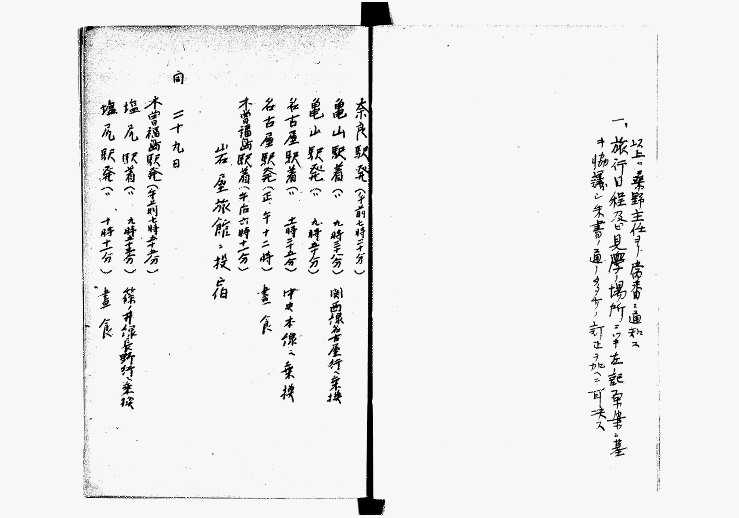 以上ハ桑野主任ヨリ常番ニ通知ス
一、旅行日程及ビ見学ノ場所ニツキ左ノ記原案ニ基
キ協議シ朱書ノ通リ多少ノ訂正ヲ加ヘ可決ス
奈良駅発(午前七時二十分)
亀山駅着(〃 九時三十八分) 関西線名古屋行ニ乗換
亀山駅発(〃 九時五十分)
名古屋駅着(〃 十一時三十五分) 中央本線ニ乗換
名古屋駅発(正午十二時) 昼食
木曽福島駅着(午后六時十一分)
岩屋旅館ニ投泊
同 二十九日
木曽福島駅発(午前七時五十五分)
塩尻駅着(〃 九時三十五分) 篠ノ井線長野行ニ乗換
塩尻駅発(〃 十時十一分) 昼食